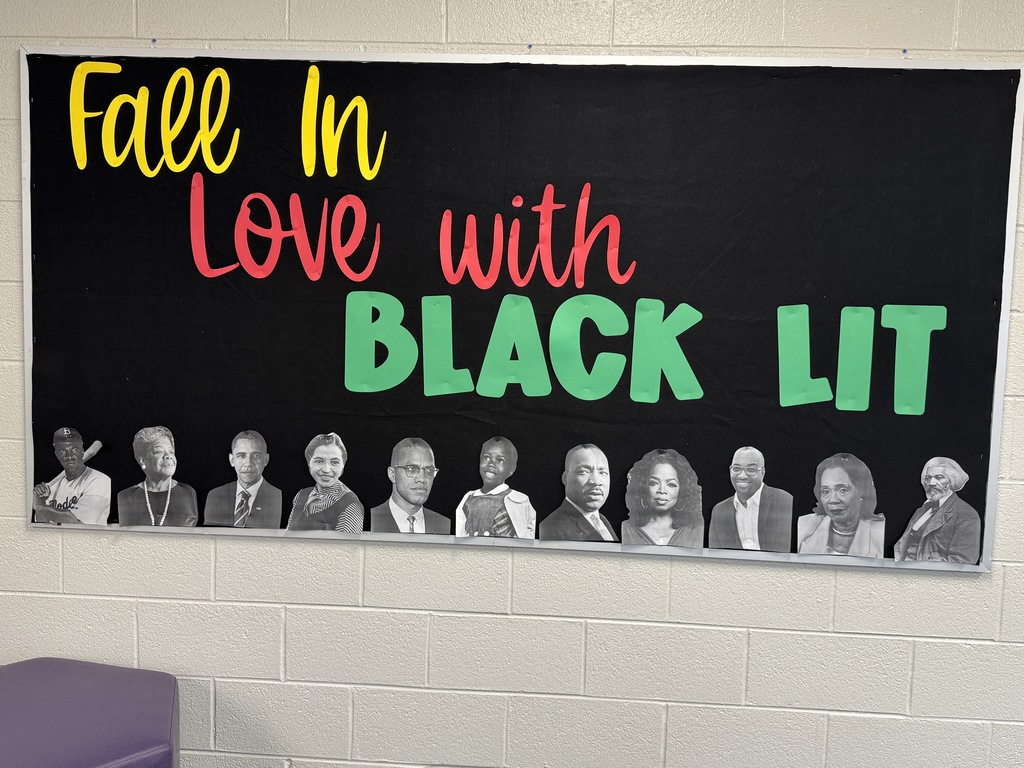 Fall In
Love with
BLACK LIT
B
Dodg